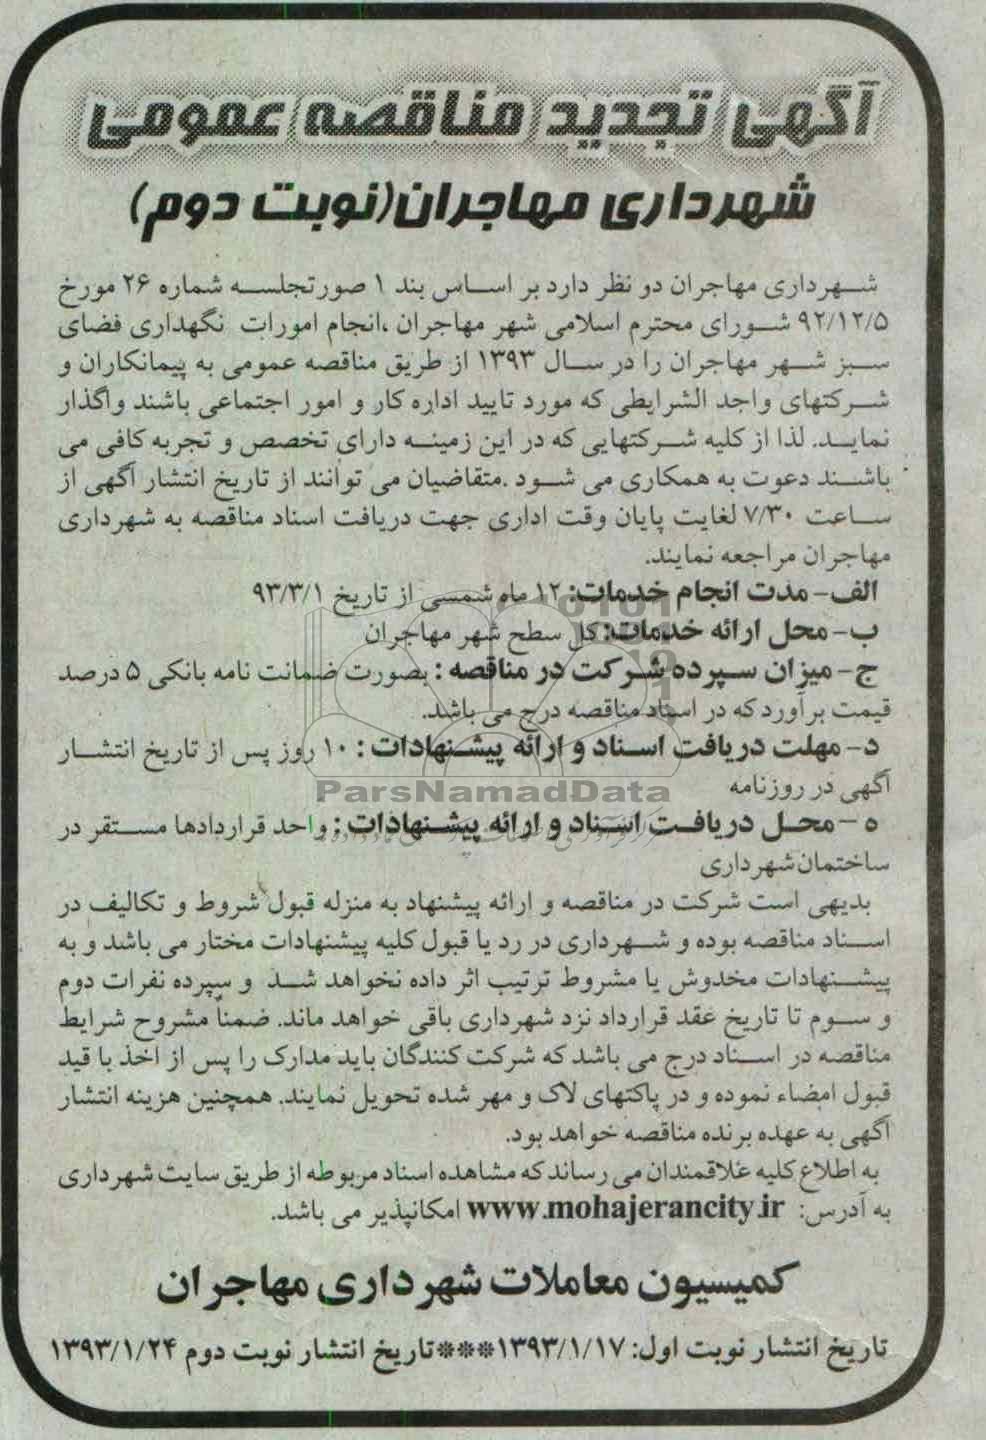 آگهی تجدید مناقصه عمومی
شهرداری مهاجران(نوبت دوم)
شهرداری مهاجران دو نظر دارد بر اساس بند ۱ صورتجلسه شماره ۲۶ مورخ
۹۲/۱۲/۵ شورای محترم اسلامی شهر مهاجران ،انجام امورات نگهداری فضای
سبز شهر مهاجران را در سال ۱۳۹۳ از طریق مناقصه عمومی به پیمانکاران و
شرکتهای واجد الشرایطی که مورد تایید اداره کار و امور اجتماعی باشند واگذار
نماید. لذا از کلیه شرکتهایی که در این زمینه دارای تخصص و تجربه کافی می
باشند دعوت به همکاری می شود .متقاضیان می توانند از تاریخ انتشار آگهی از
ساعت ۷/۳۰ لغایت پایان وقت اداری جهت دریافت اسناد مناقصه به شهرداری
مهاجران مراجعه نمایند.
الف- مدت انجام خدمات: ۱۲ ماه شمسی از تاریخ ۹۳/۳/۱
ب- محل ارائه خدمات: کل سطح شهر مهاجران
ج- میزان سپرده شرکت در مناقصه : بصورت ضمانت نامه بانکی ۵ درصد
قیمت برآورد که در اسناد مناقصه درج می باشد.
د- مهلت دریافت اسناد و ارائه پیشنهادات : ۱۰ روز پس از تاریخ انتشار
آگهی در روزنامه
ParsNamadData
ه - محل دریافت اسناد و ارائه پیشنهادات : واحد قراردادها مستقر در
ساختمان شهرداری
بدیهی است شرکت در مناقصه و ارائه پیشنهاد به منزله قبول شروط و تکالیف در
اسناد مناقصه بوده و شهرداری در رد یا قبول کلیه پیشنهادات مختار می باشد و به
پیشنهادات مخدوش یا مشروط ترتیب اثر داده نخواهد شد و سپرده نفرات دوم
و سوم تا تاریخ عقد قرارداد نزد شهرداری باقی خواهد ماند. ضمناً مشروح شرایط
مناقصه در اسناد درج می باشد که شرکت کنندگان باید مدارک را پس از اخذ با قید
قبول امضاء نموده و در پاکتهای لاک و مهر شده تحویل نمایند. همچنین هزینه انتشار
آگهی به عهده برنده مناقصه خواهد بود.
به اطلاع کلیه علاقمندان می رساند که مشاهده اسناد مربوطه از طریق سایت شهرداری
به آدرس: www.mohajerancity.ir امکانپذیر می باشد.
کمیسیون معاملات شهرداری مهاجران
تاریخ انتشار نوبت اول: ۱۳۹۳/۱/۱۷***تاریخ انتشار نوبت دوم ۱۳۹۳/۱/۲۴